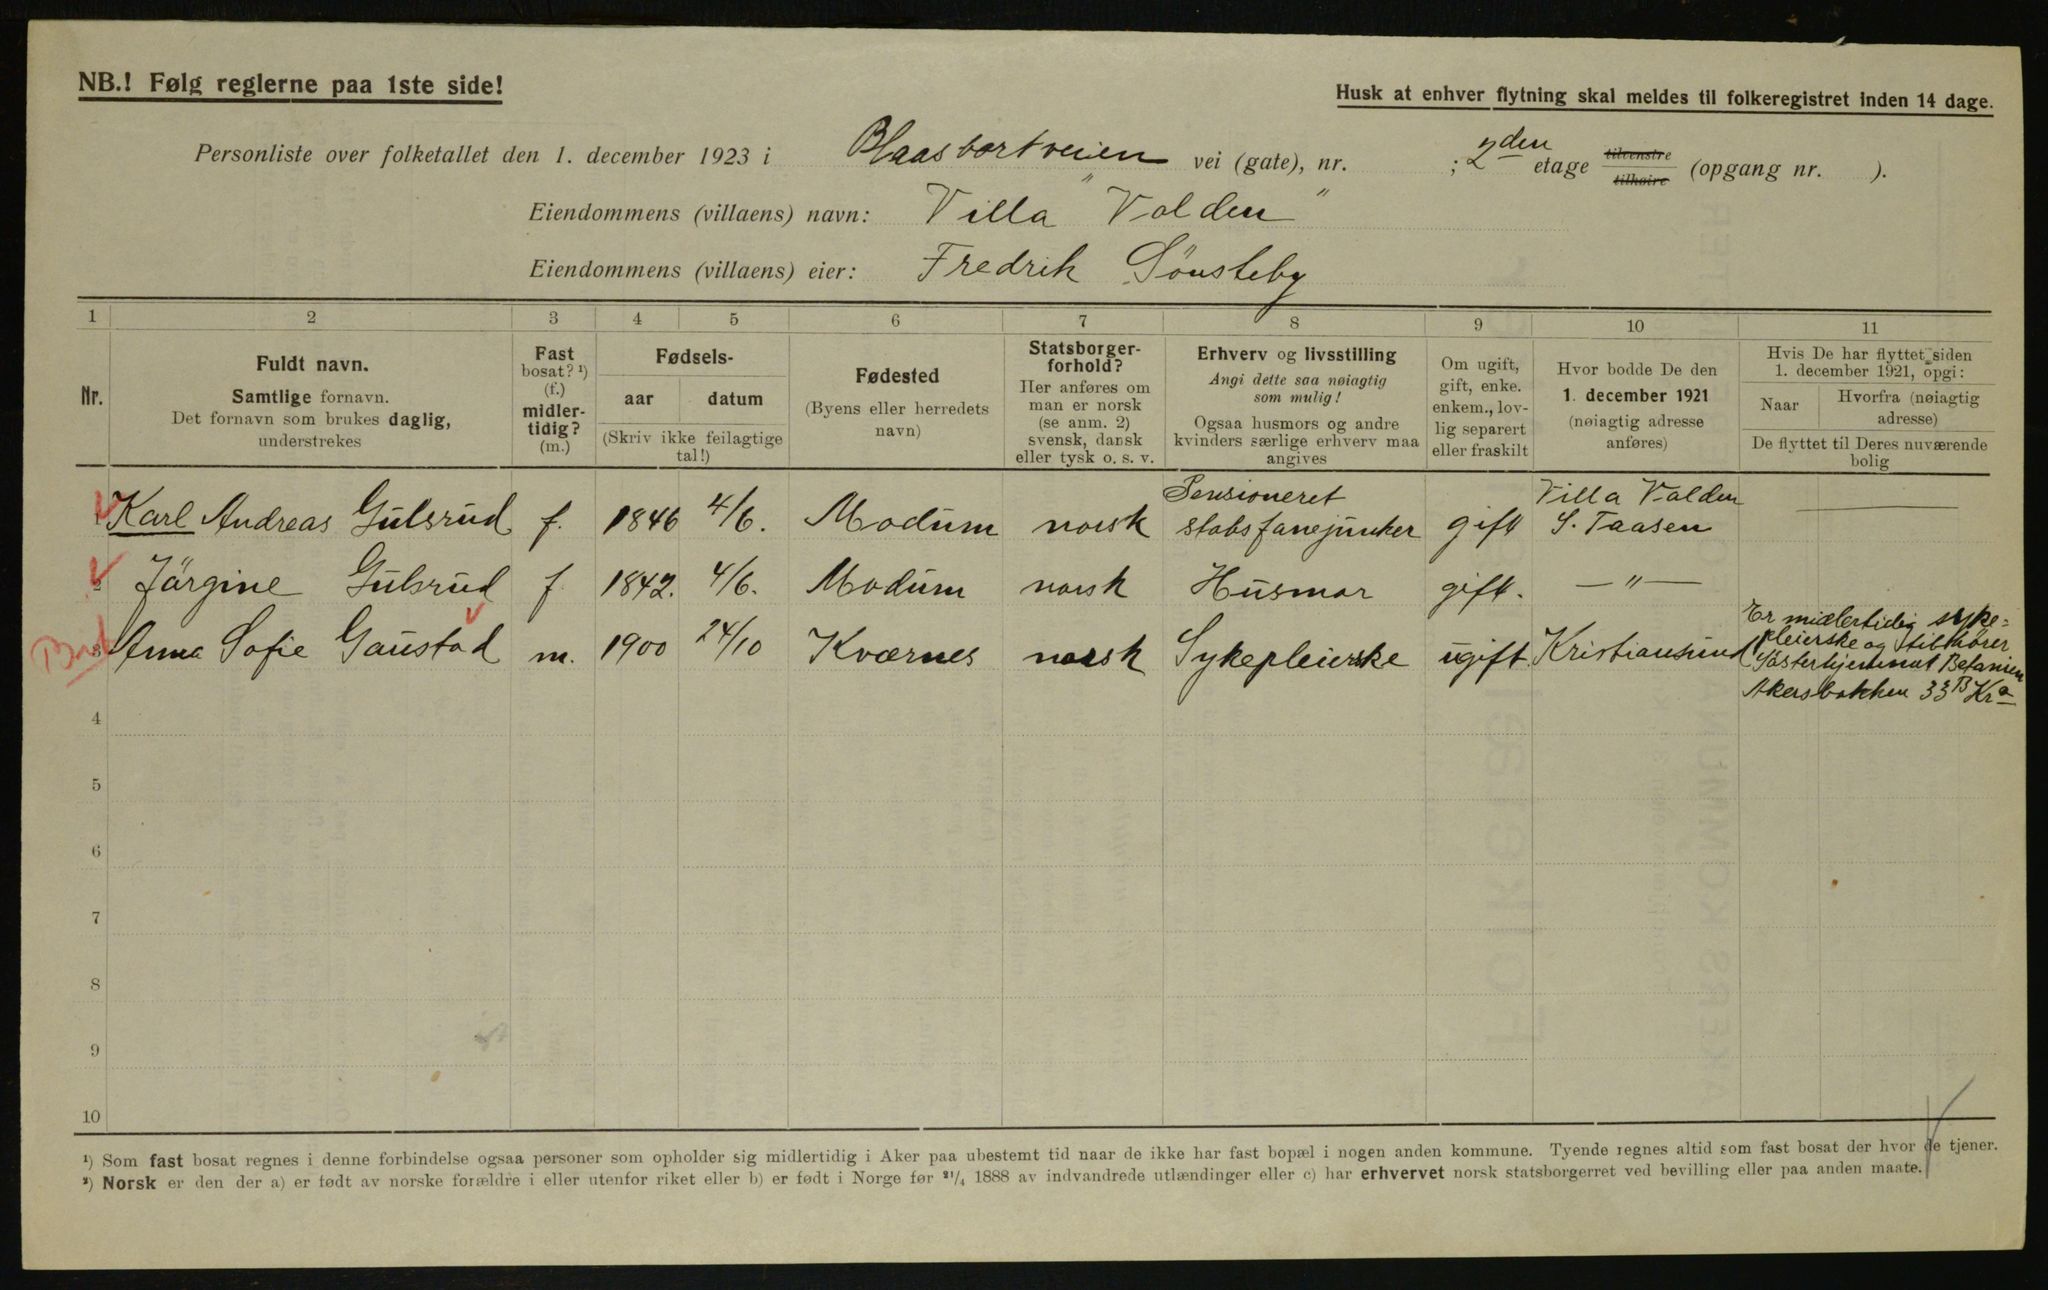 NB.! Følg reglerne paa 1ste side!
Husk at enhver flytning skal meldes til folkeregistret inden 14 dage.
Personliste over folketallet den 1. december 1923 i Blaasbortveien vei (gate), nr. ; 2den etage tilvenstre tilhøire (opgang nr. ).
Eiendommens (villaens) navn: Villa "Volden"
Eiendommens (villaens) eier: Fredrik Sönsteby
1 2 3 4 5 6 7 8 9 10 11
Nr.
Fuldt navn.
Samtlige fornavn.
Det fornavn som brukes daglig,
understrekes
Fast
bosat? ¹)
(f.)
midler-
tidig?
(m.)
Fødsels-
aar datum
(Skriv ikke feilagtige
tal!)
Fødested
(Byens eller herredets
navn)
Statsborger-
forhold?
Her anføres om
man er norsk
(se anm. 2)
svensk, dansk
eller tysk o. s. v.
Erhverv og livsstilling
Angi dette saa nøiagtig
som mulig!
Ogsaa husmors og andre
kvinders særlige erhverv maa
angives
Om ugift,
gift, enke.
enkem., lov-
lig separert
eller fraskilt
Hvor bodde De den
1. december 1921
(nøiagtig adresse
anføres)
Hvis De har flyttet siden
1. december 1921, opgi:
Naar
Hvorfra (nøiagtig
adresse)
De flyttet til Deres nuværende
bolig
1 Karl Andreas Gulsrud f. 1846 4/6. Modum norsk Pensioneret stabsfanejunker gift Villa Valden S. Taasen
2 Jörgine Gulsrud f. 1842. 4/6. Modum norsk Husmor gift. —"—
3 Anna Sofie Gaustad m. 1900 24/10 Kværnes norsk Sykepleierske ugift Kristiansund Er midlertidig syke=
pleierske og tilhører
Sösterhjemmet Betanien
Akersbakken 33B Kra
4
5
6
7
8
9
10
¹) Som fast bosat regnes i denne forbindelse ogsaa personer som opholder sig midlertidig i Aker paa ubestemt tid naar de ikke har fast bopæl i nogen anden kommune. Tyende regnes altid som fast bosat der hvor de tjener.
²) Norsk er den der a) er født av norske forældre i eller utenfor riket eller b) er født i Norge før 21/4 1888 av indvandrede utlændinger eller c) har erhvervet norsk statsborgerret ved bevilling eller paa anden maate.